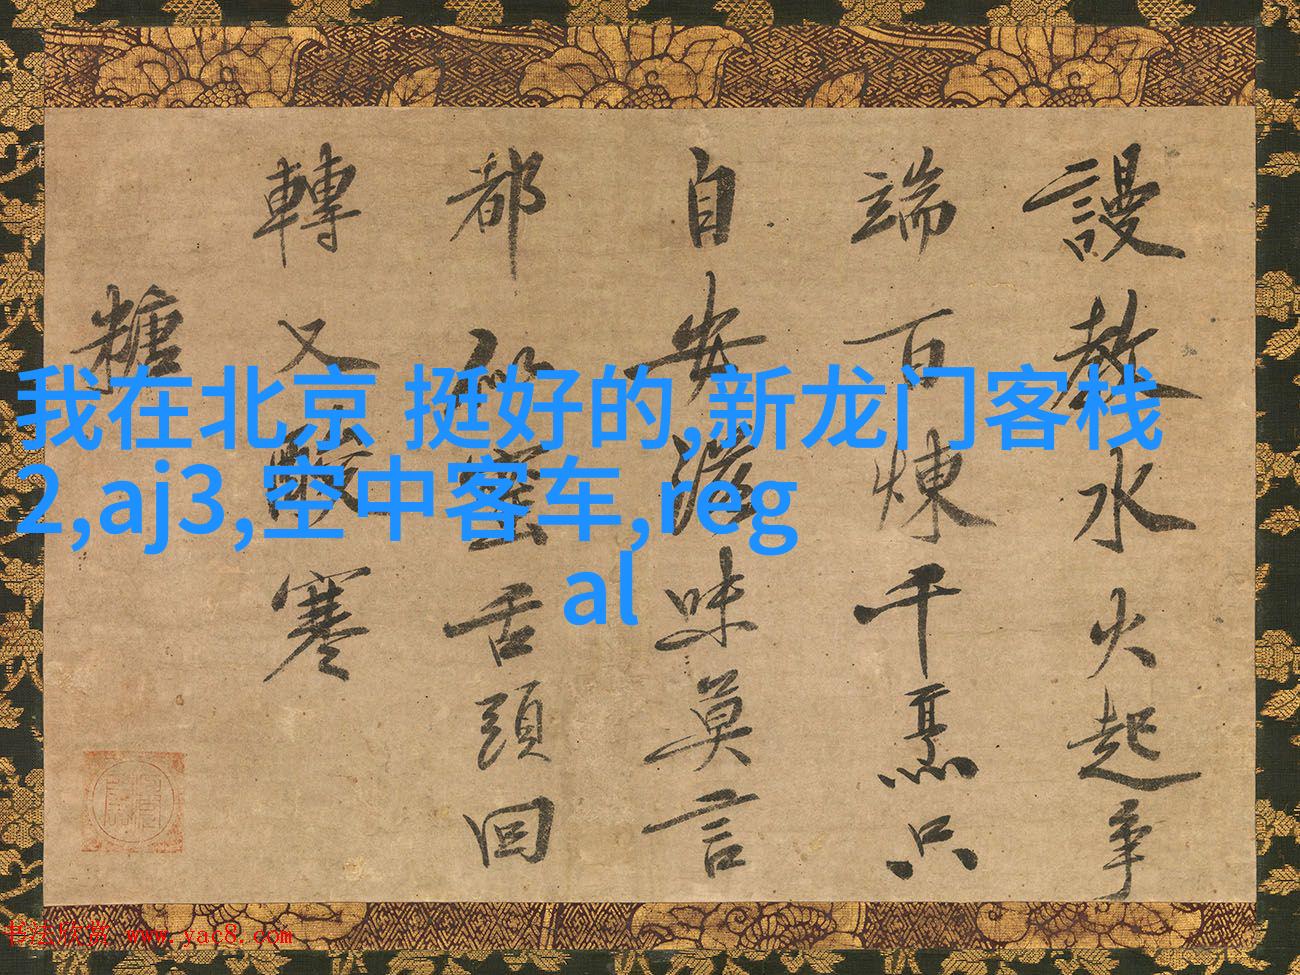 我在北京 挺好的,新龙门客栈
2,aj3,空中客车,reg
al
謾教水火起爭
端百煉千熏只
自安滋味莫言
都似蜜舌頭回
轉又酸寒
糖
书法欣赏 www.yac8.com